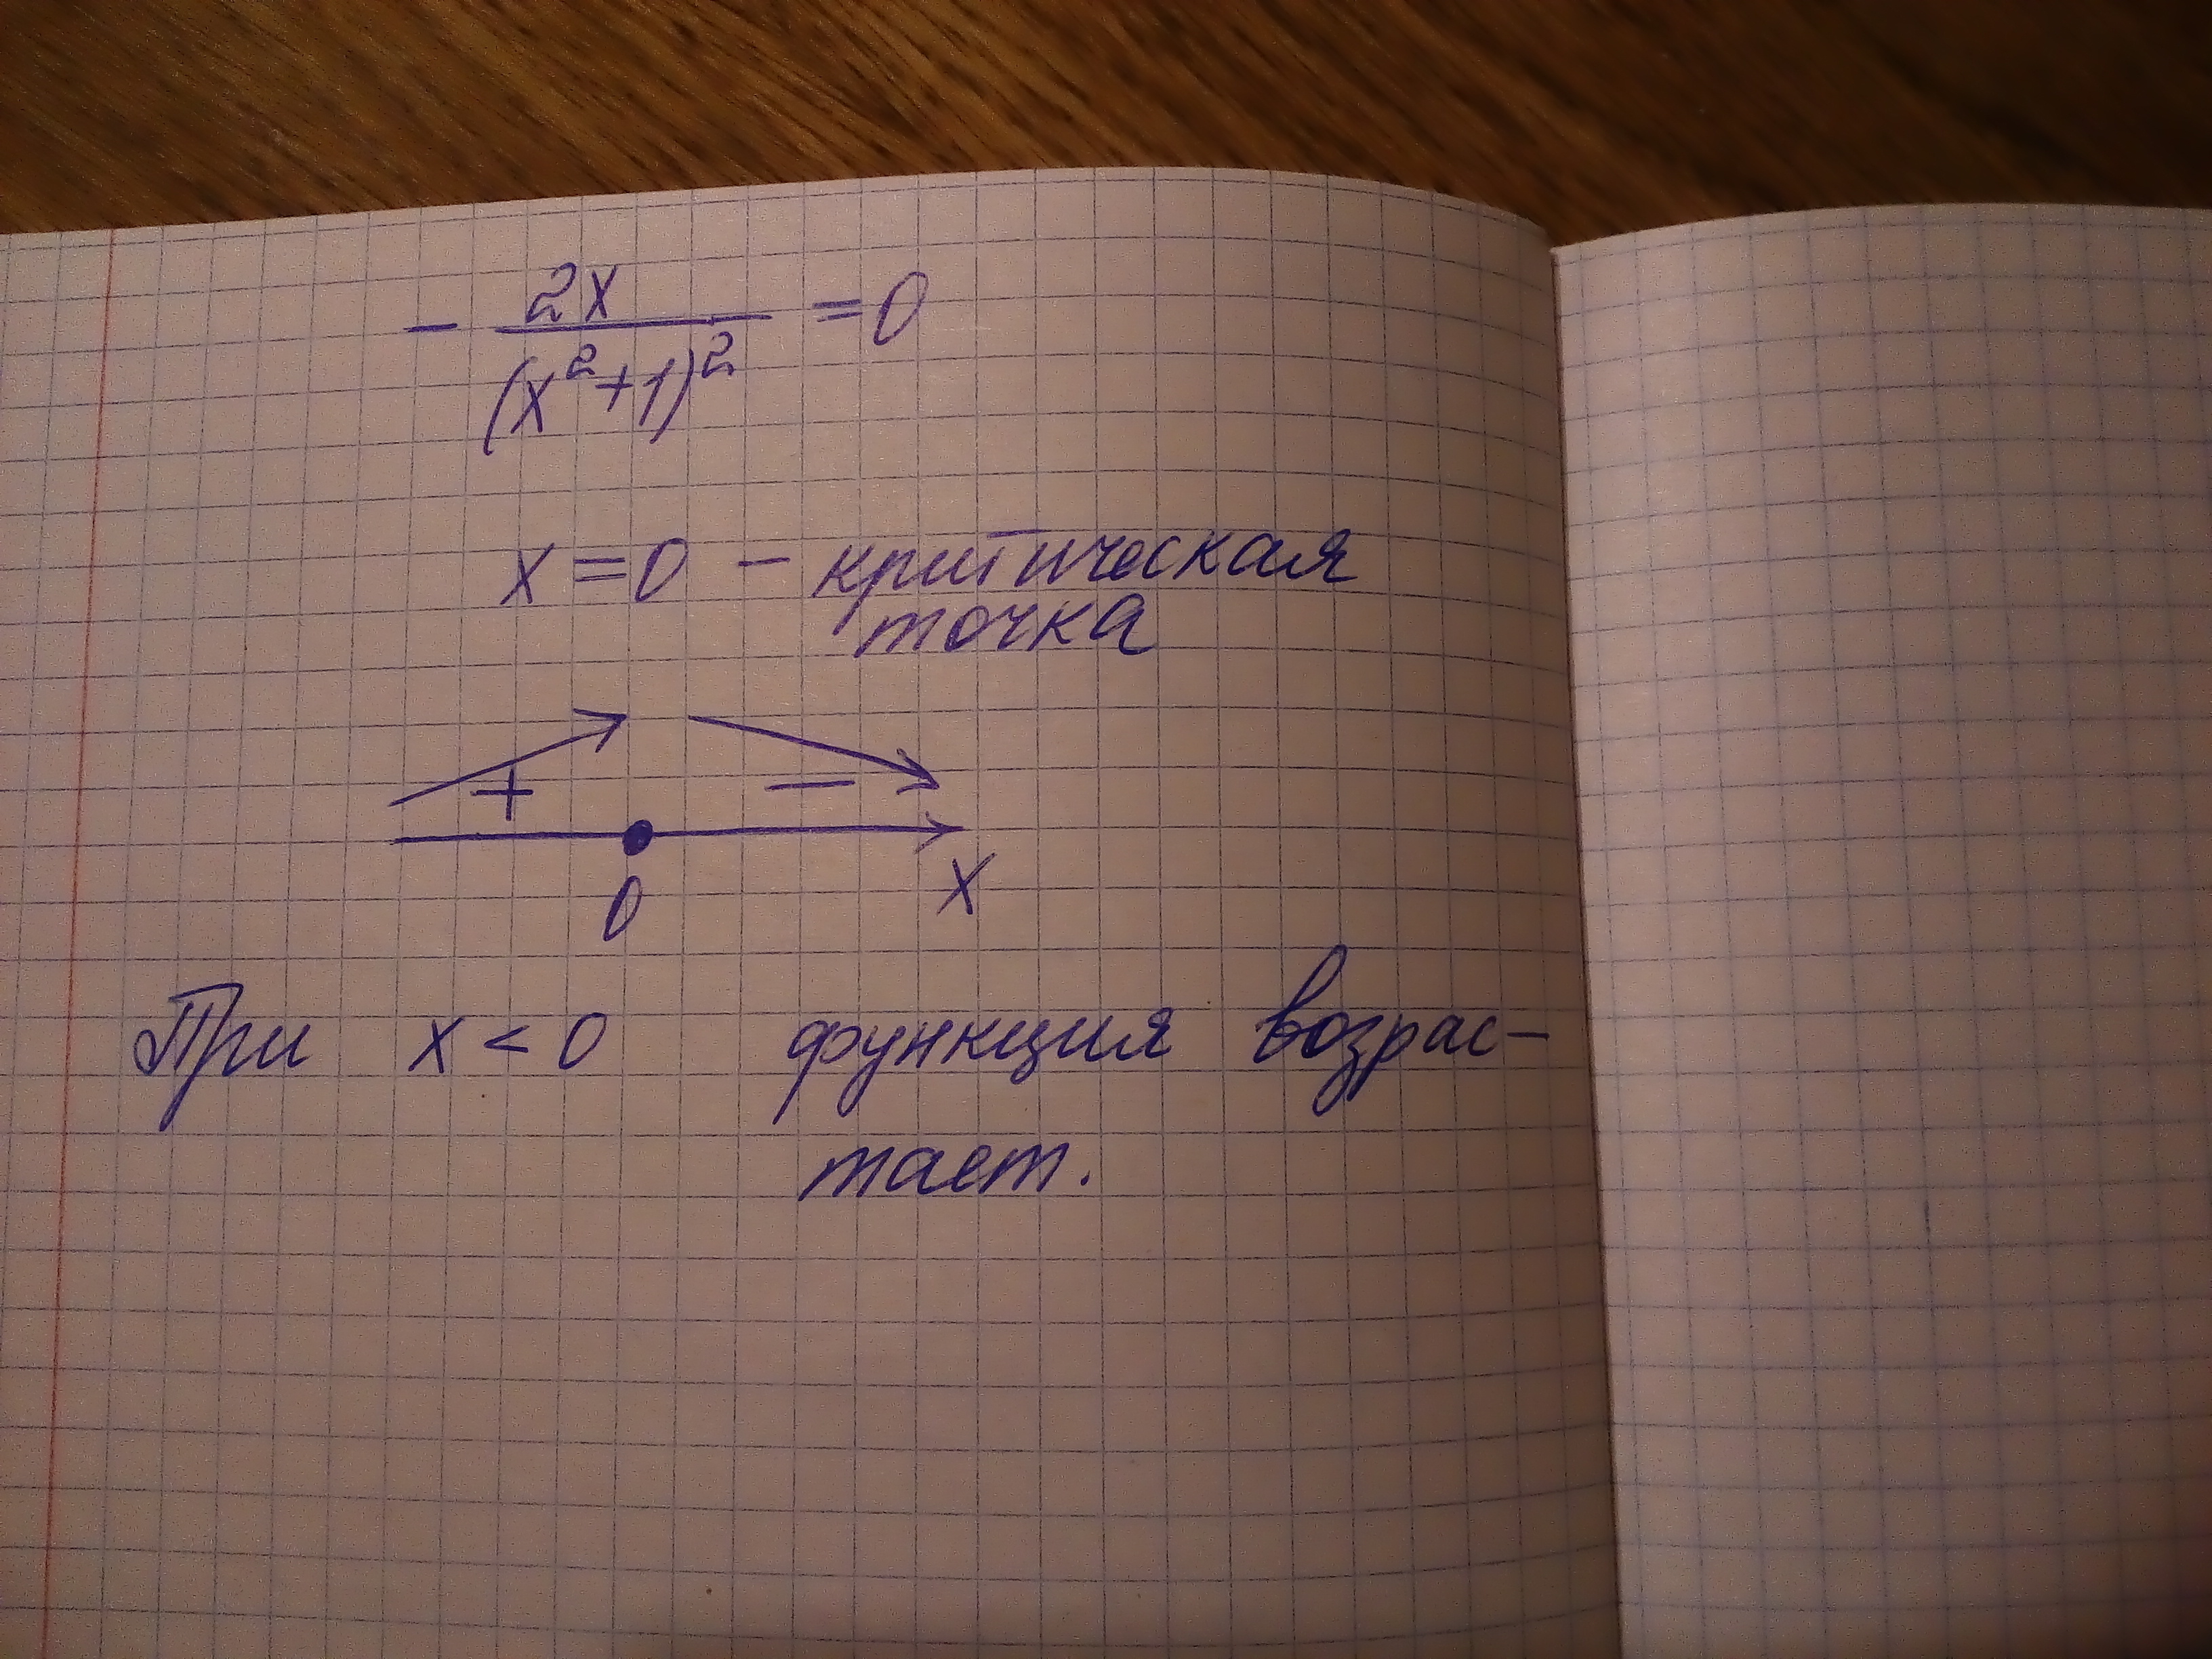 - 2x/(x²+1)² = 0
x = 0 - критическая
точка
+ -
0 x
При x < 0 функция возрас-
тает.